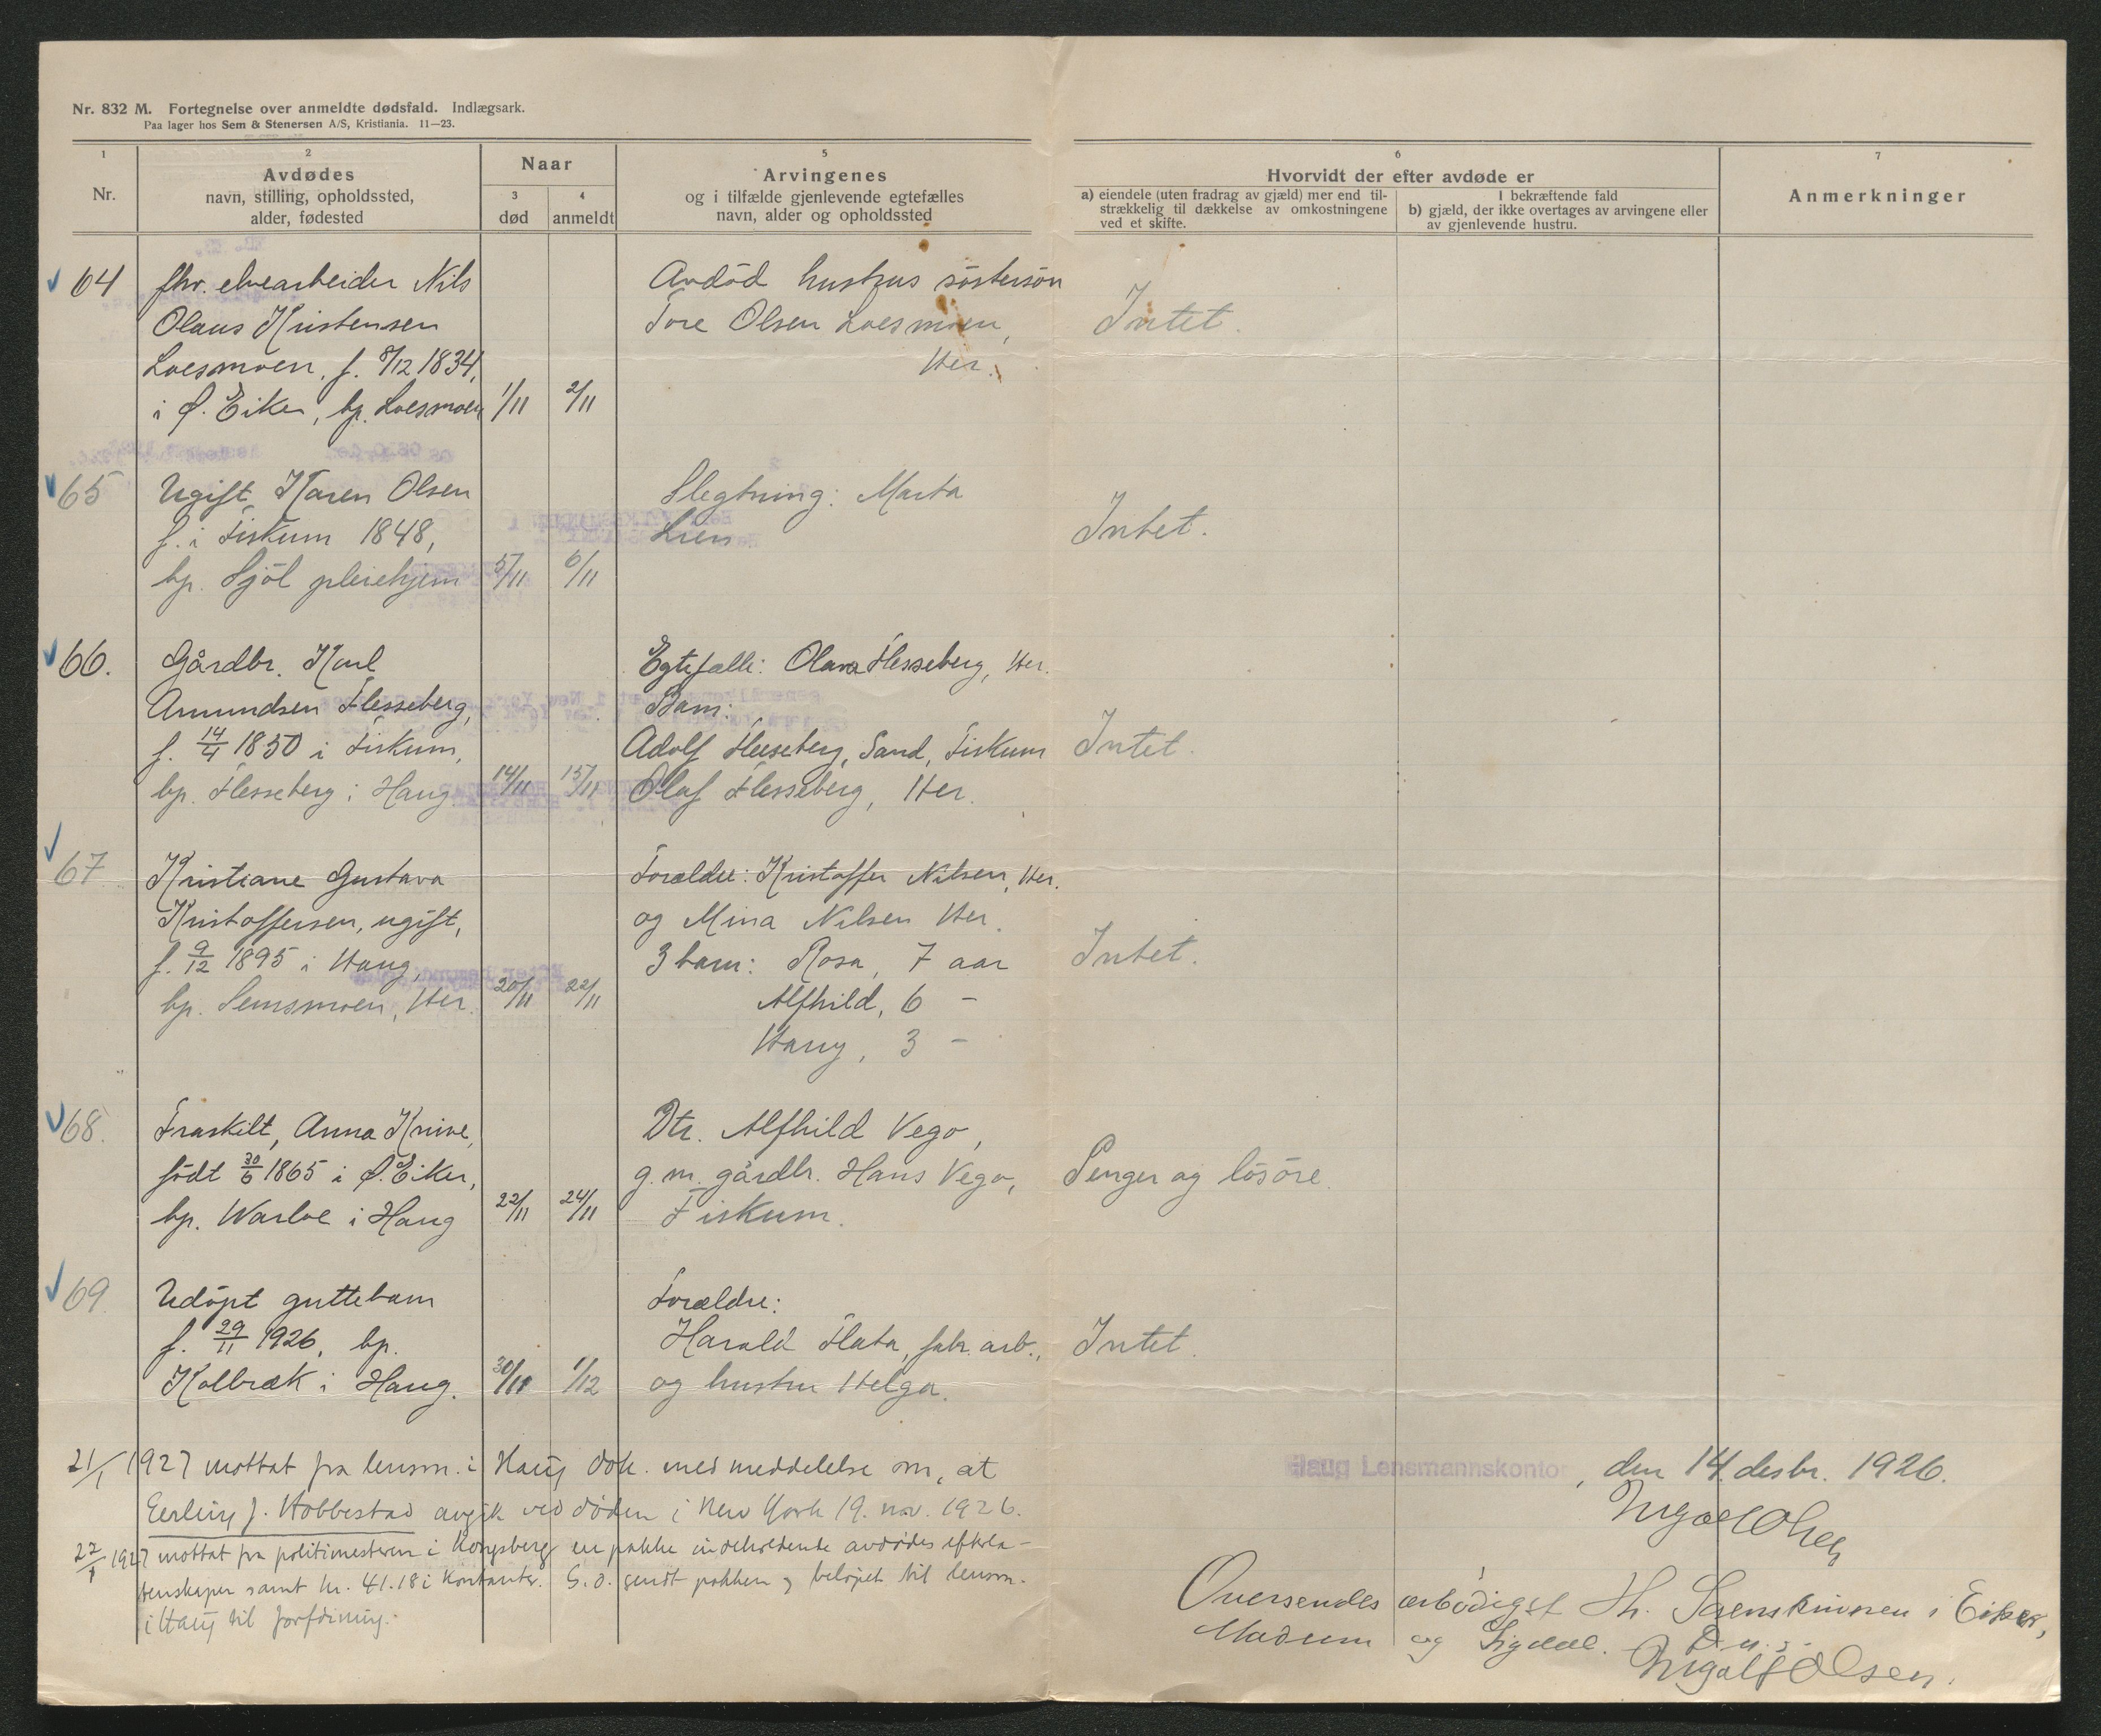 Nr. 832 M. Fortegnelse over anmeldte dødsfald. Indlægsark.
Paa lager hos Sem & Stenersen A/S, Kristiania. 11—23.
1
Nr.
2
Avdødes
navn, stilling, opholdssted,
alder, fødested
Naar
3
død
4
anmeldt
5
Arvingenes
og i tilfælde gjenlevende egtefælles
navn, alder og opholdssted
6
Hvorvidt der efter avdøde er
a) eiendele (uten fradrag av gjæld) mer end til-
strækkelig til dækkelse av omkostningene
ved et skifte.
I bekræftende fald
b) gjæld, der ikke overtages av arvingene eller
av gjenlevende hustru.
7
Anmerkninger
64 fhv. elvearbeider Nils
Olaus Kristensen
Loesmoen, f. 8/12 1834,
i Ø. Eiker, bp. Loesmoen 1/11 2/11
Avdød hustrus søstersøn
Tore Olsen Loesmoen,
Her.
Intet.
65 Ugift, Karen Olsen
f. i Fiskum 1848,
bp. Sjøl pleiehjem 5/11 6/11
Slegtning: Marta
Lien
Intet.
66. Gårdbr. Karl
Amundsen Flesseberg,
f. 14/4 1850 i Fiskum,
bp. Flesseberg i Haug. 14/11 15/11
Egtefælle: Olava Flesseberg, Her.
Barn:
Adolf Flesseberg, Sand, Fiskum
Olaf Flesseberg, Her.
Intet.
67 Kristiane Gustava
Kristoffersen, ugift,
f. 9/12 1895 i Haug,
bp. Semsmoen, Her. 20/11 22/11
Forældre: Kristoffer Nilsen, Her.
og Mina Nilsen Her.
3 barn: Rosa, 7 aar
Alfhild, 6 -
Harry, 3 -
Intet.
68. Fraskilt, Anna Knive,
født 30/6 1865 i Ø. Eiker,
bp. Warloe i Haug 22/11 24/11
Dtr. Alfhild Vego,
g. m. gårdbr. Hans Vego,
Fiskum.
Penger og løsøre.
69. Udøpt guttebarn
f. 29/11 1926, bp.
Kolbræk i Haug. 30/11 1/12
Forældre:
Harald Flata, fabr. arb.,
og hustru Helga.
Intet.
21/1 1927 mottat fra lensm. i Haug dok. med meddelelse om, at
Eerling J. Hobbestad avgik ved døden i New York 19. nov. 1926.
27/1 1927 mottat fra politimesteren i Kongsberg en pakke indeholdende avdødes efterla-
tenskaper samt kr. 41.18 i kontanter. S.d. sendt pakken og beløpet til lensm.
i Haug til forføining.
Haug Lensmannskontor, den 14. desbr. 1926.
Ingolf Olsen
Oversendes ærbødigst Hr. Sorenskriveren i Eiker,
Modum og Sigdal. D. u. s.
Ingolf Olsen.